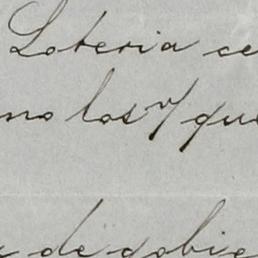 Loteria ce
no los y que
de gobie